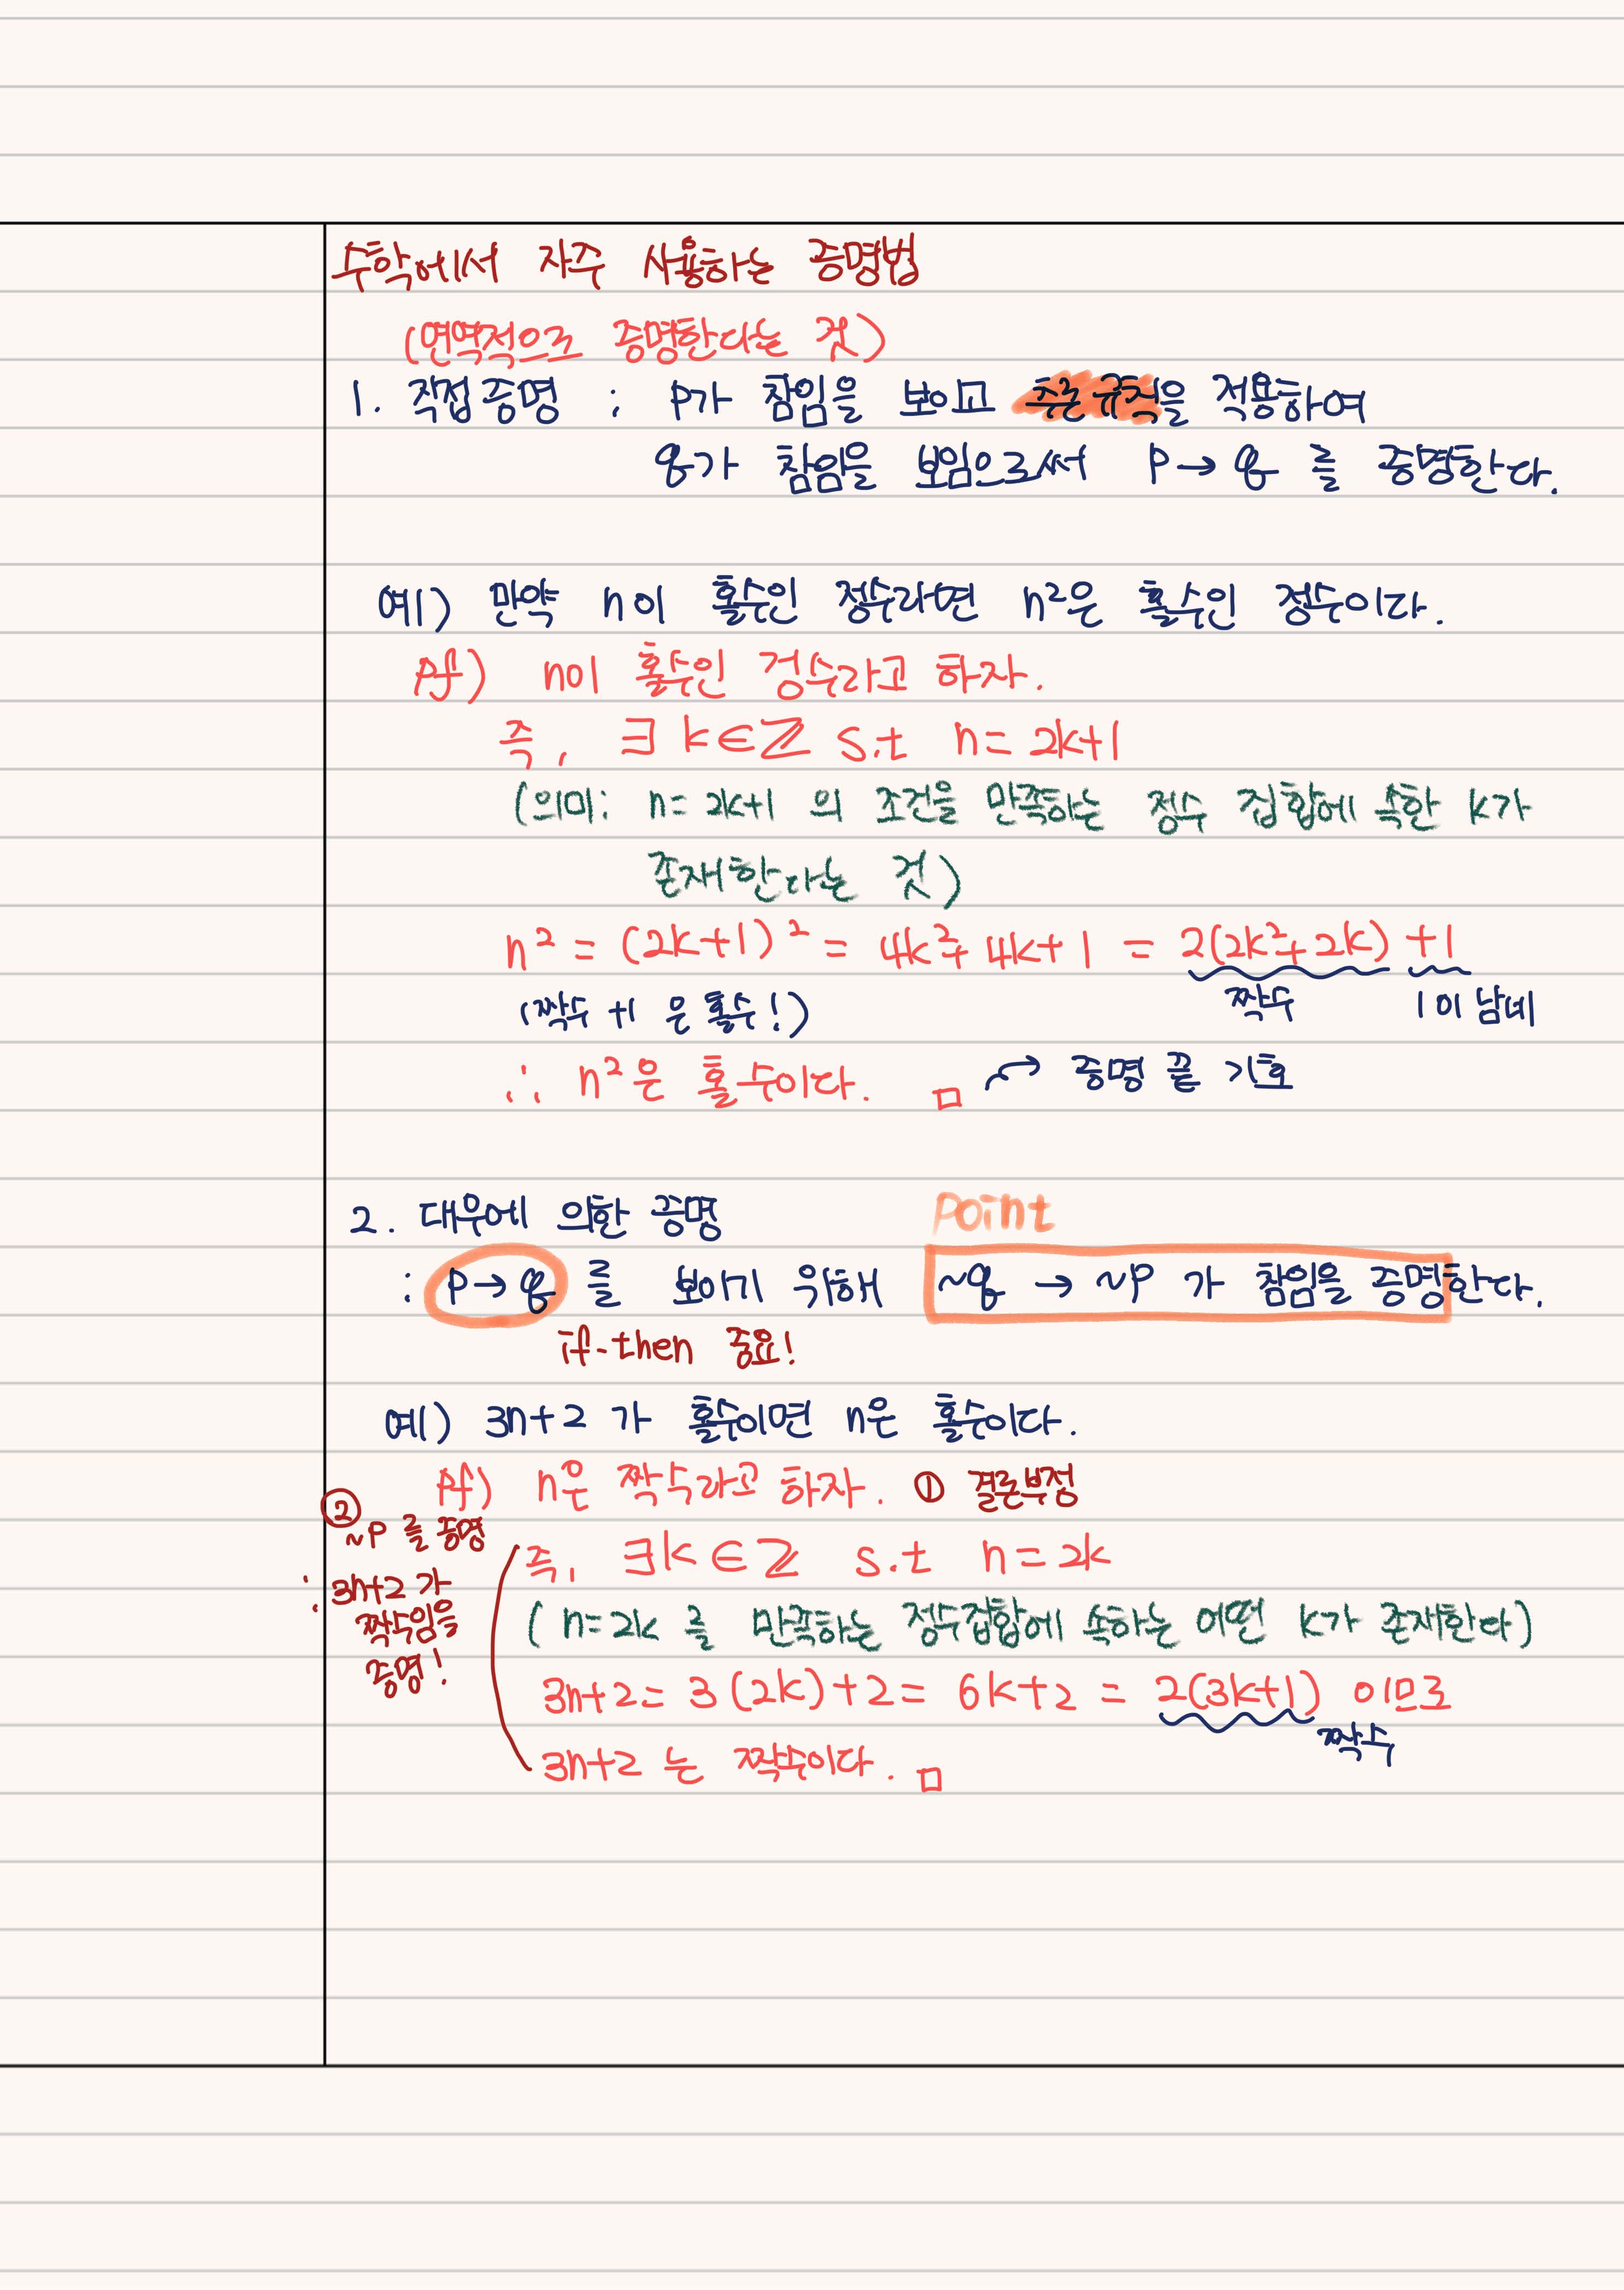 수학에서 자주 사용하는 증명법
(연역적으로 증명한다는 것)
1. 직접증명 : P가 참임을 보이고 추론 규칙을 적용하여
q가 참임을 보임으로써 P → q 를 증명한다.
예) 만약 n이 홀수인 정수라면 n²은 홀수인 정수이다.
Pf) n이 홀수인 정수라고 하자.
즉, ∃ k∈ℤ s.t n = 2k+1
(의미: n = 2k+1 의 조건을 만족하는 정수 집합에 속한 k가
존재한다는 것)
n² = (2k+1)² = 4k²+4k+1 = 2(2k²+2k) +1
(짝수 +1 은 홀수!) 짝수 1이 남네
∴ n²은 홀수이다. □ 증명 끝 기호
2. 대우에 의한 증명 Point
: P → q 를 보이기 위해 ~q → ~P 가 참임을 증명한다.
if-then 중요!
예) 3n+2 가 홀수이면 n은 홀수이다.
Pf) n은 짝수라고 하자. ① 결론부정
② ~P 를 증명
∴ 3n+2 가
짝수임을
증명!
즉, ∃k ∈ ℤ s.t n = 2k
( n=2k 를 만족하는 정수집합에 속하는 어떤 k가 존재한다)
3n+2 = 3(2k)+2 = 6k+2 = 2(3k+1) 이므로
짝수
3n+2 는 짝수이다. □